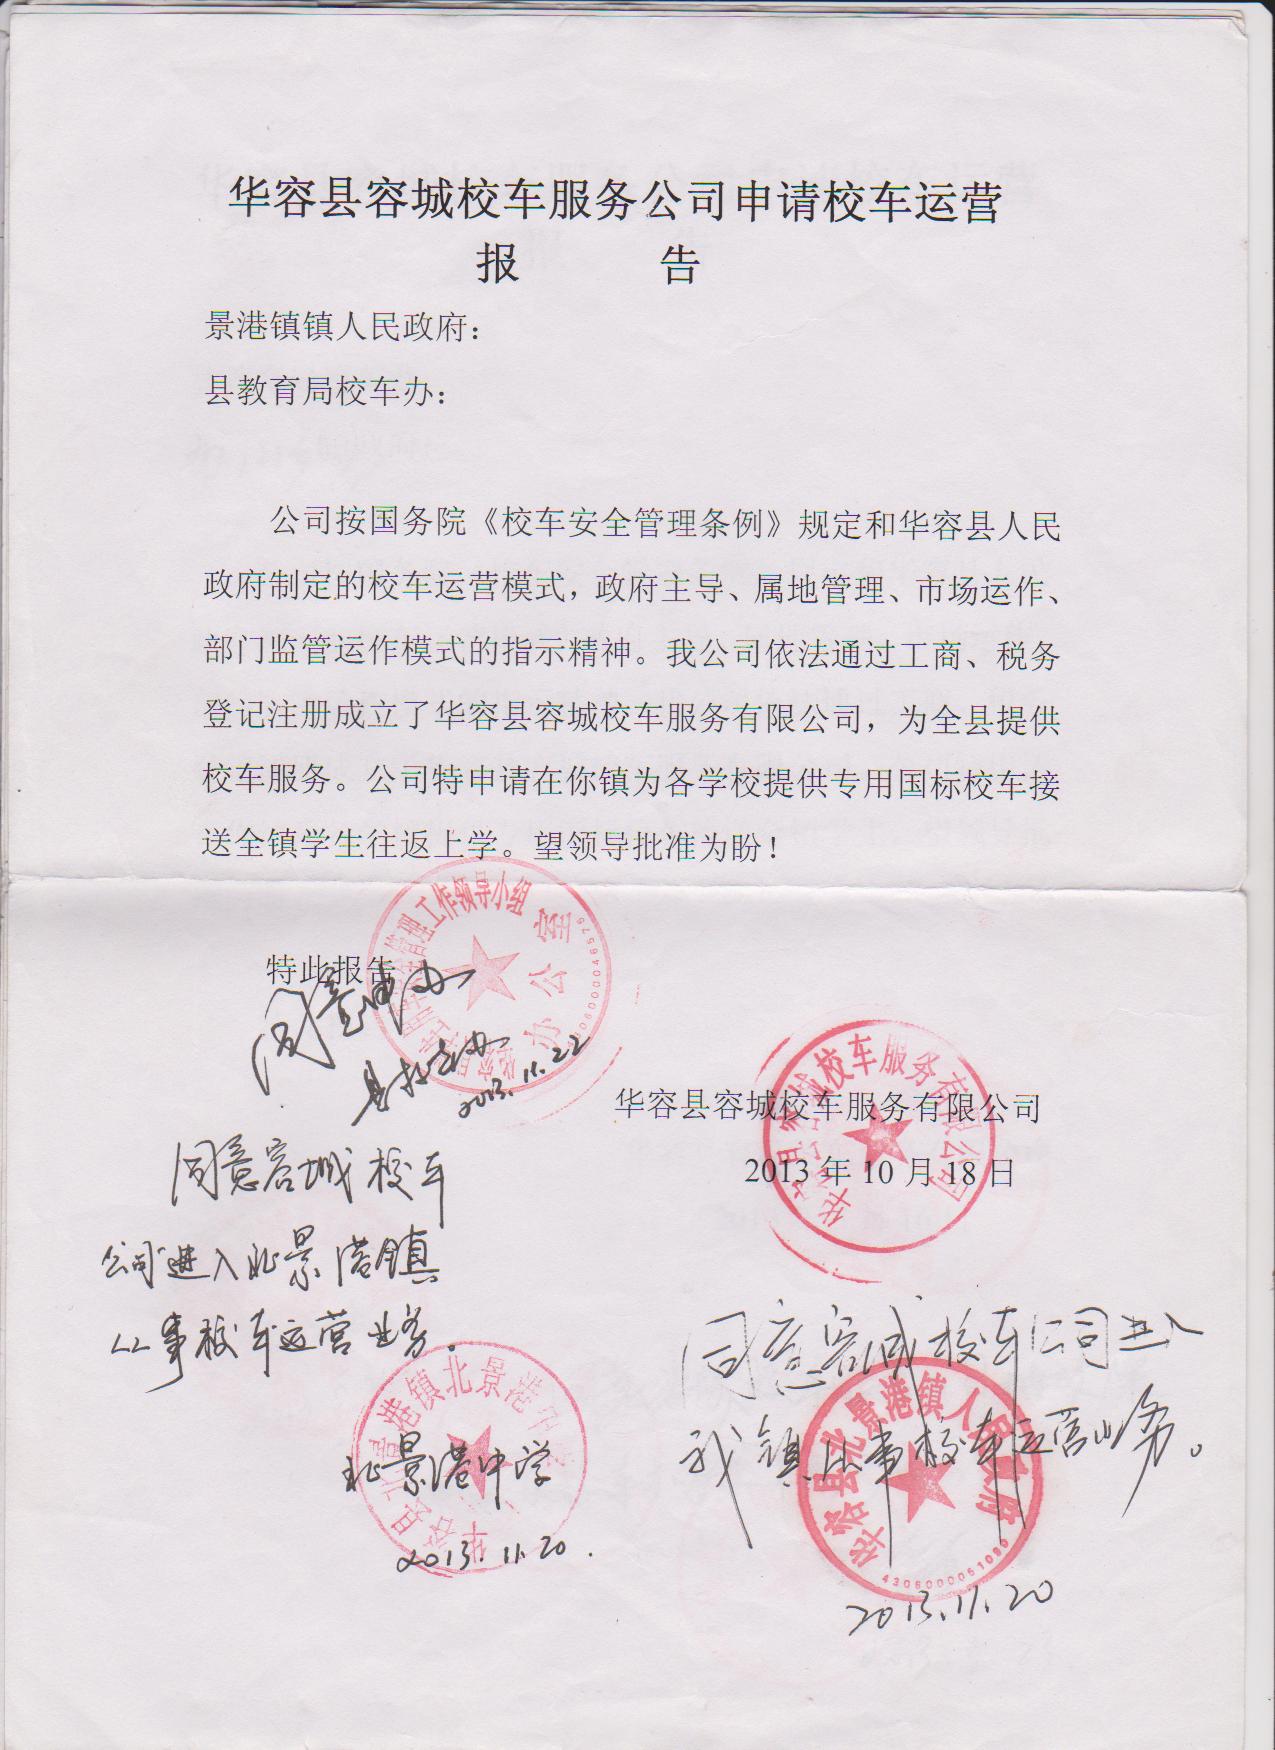 华容县容城校车服务公司申请校车运营
报 告
景港镇镇人民政府：
县教育局校车办：
公司按国务院《校车安全管理条例》规定和华容县人民
政府制定的校车运营模式，政府主导、属地管理、市场运作、
部门监管运作模式的指示精神。我公司依法通过工商、税务
登记注册成立了华容县容城校车服务有限公司，为全县提供
校车服务。公司特申请在你镇为各学校提供专用国标校车接
送全镇学生往返上学。望领导批准为盼！
特此报告
管理工作领导小组
办公室
4306000046575
同意
2013.11.22
华容县容城校车服务有限公司
2013年10月18日
华容县容城校车服务有限公司
同意容城校车
公司进入北景港镇
从事校车运营业务.
华容县北景港镇北景港中学
北景港中学
2013.11.20.
同意容城校车公司进入
我镇从事校车运营业务。
华容县北景港镇人民政府
4306000051090
2013.11.20